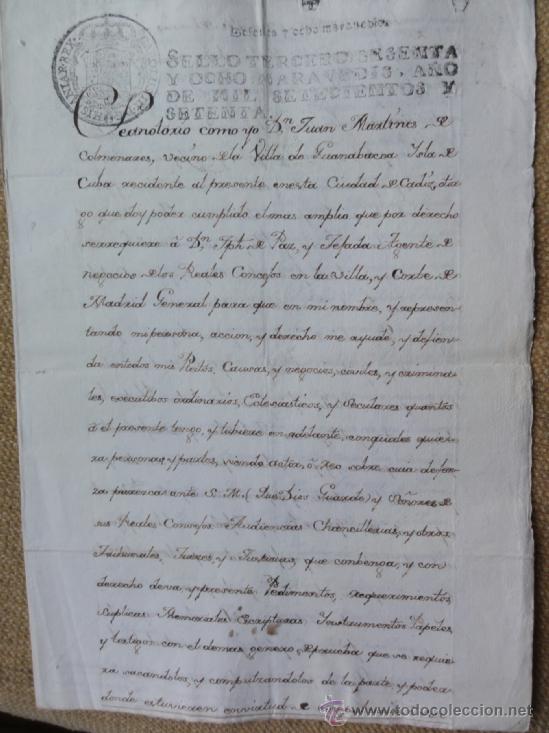 Sesenta y ocho maravedis
SELLO TERCERO, SESENTA
Y OCHO MARAVEDIS, AÑO
DE MIL SETECIENTOS Y
SETENTA.
Seanotorio como yo Dn. Juan Martines de
Colmenares, vecino de la Villa de Guanabacoa Ysla de
Cuba recidente al presente enesta Ciudad de Cadiz, otor
go que doy poder cumplido elmas amplio que por derecho
serrequiere á Dn. Jph. de Paz, y Tejada Agente de
negocios de los Reales Concejos en la villa, y Corte de
Madrid General para que en mi nombre, y represen
tando mi persona, accion, y derecho me ayude, y defien
da entodos mis Pleitos, Causas, y negocios, civiles, y crimina
les, executibos ordinarios, Eclesiasticos, y Seculares quantos
á el presente tengo, y tubiere en adelante, conquales quie
ra personas, y partes, siendo actor, ó Reo sobre cuia defen
za paresca ante S. M. (Que Dios Guarde) y Señores de
sus Reales Concejos Audiencias Chancillerias, y otros
Tribunales, Jueses, y Justicias, que conbenga, y con
derecho deva, y presente Pedimentos, requerimientos,
Suplicas Memoriales Escripturas Ynstrumentos Papeles,
y testigos con el demas genero de prueba que se requie
ra sacandolos, y compulzandolos de la parte, y poder
donde estuvieren en virtud de
todocoleccion
www.todocoleccion.net